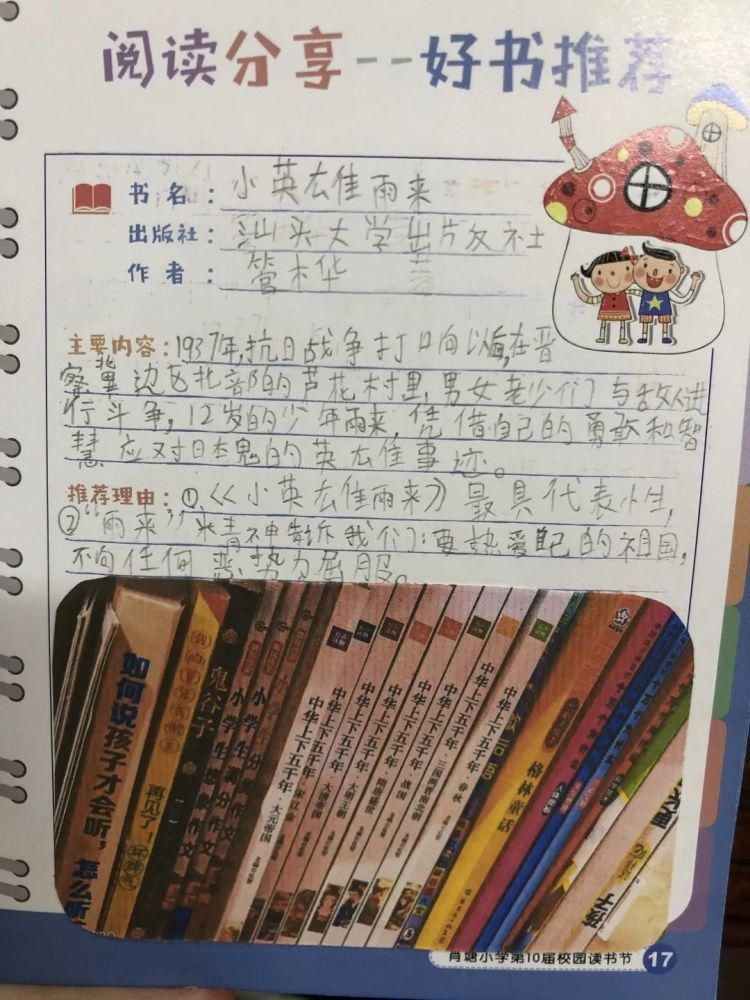 阅读分享--好书推荐
书名：小英雄雨来
出版社：汕头大学出版社
作者：管桦
主要内容：1937年，抗日战争打口向以后，在晋
察冀边区北部的芦花村里，男女老少们与敌人进
行斗争，12岁的少年雨来，凭借自己的勇敢和智
慧应对日本鬼的英雄事迹。
推荐理由：①《小英雄雨来》最具代表性，
②“雨来”精神告诉我们：要热爱自己的祖国，
不向任何恶势力屈服。
如何说孩子才会听，怎么听
再见了 坏脾气
鬼谷子
小学生想象作文
小学生满分作文
小学生分类作文
中华上下五千年·大元帝国
中华上下五千年·大清帝国
中华上下五千年·大明王朝
中华上下五千年·隋唐盛世
中华上下五千年·战国
中华上下五千年·三国两晋南北朝
中华上下五千年·春秋
歇后语
格林童话
孩子
肖塘小学第10届校园读书节 17